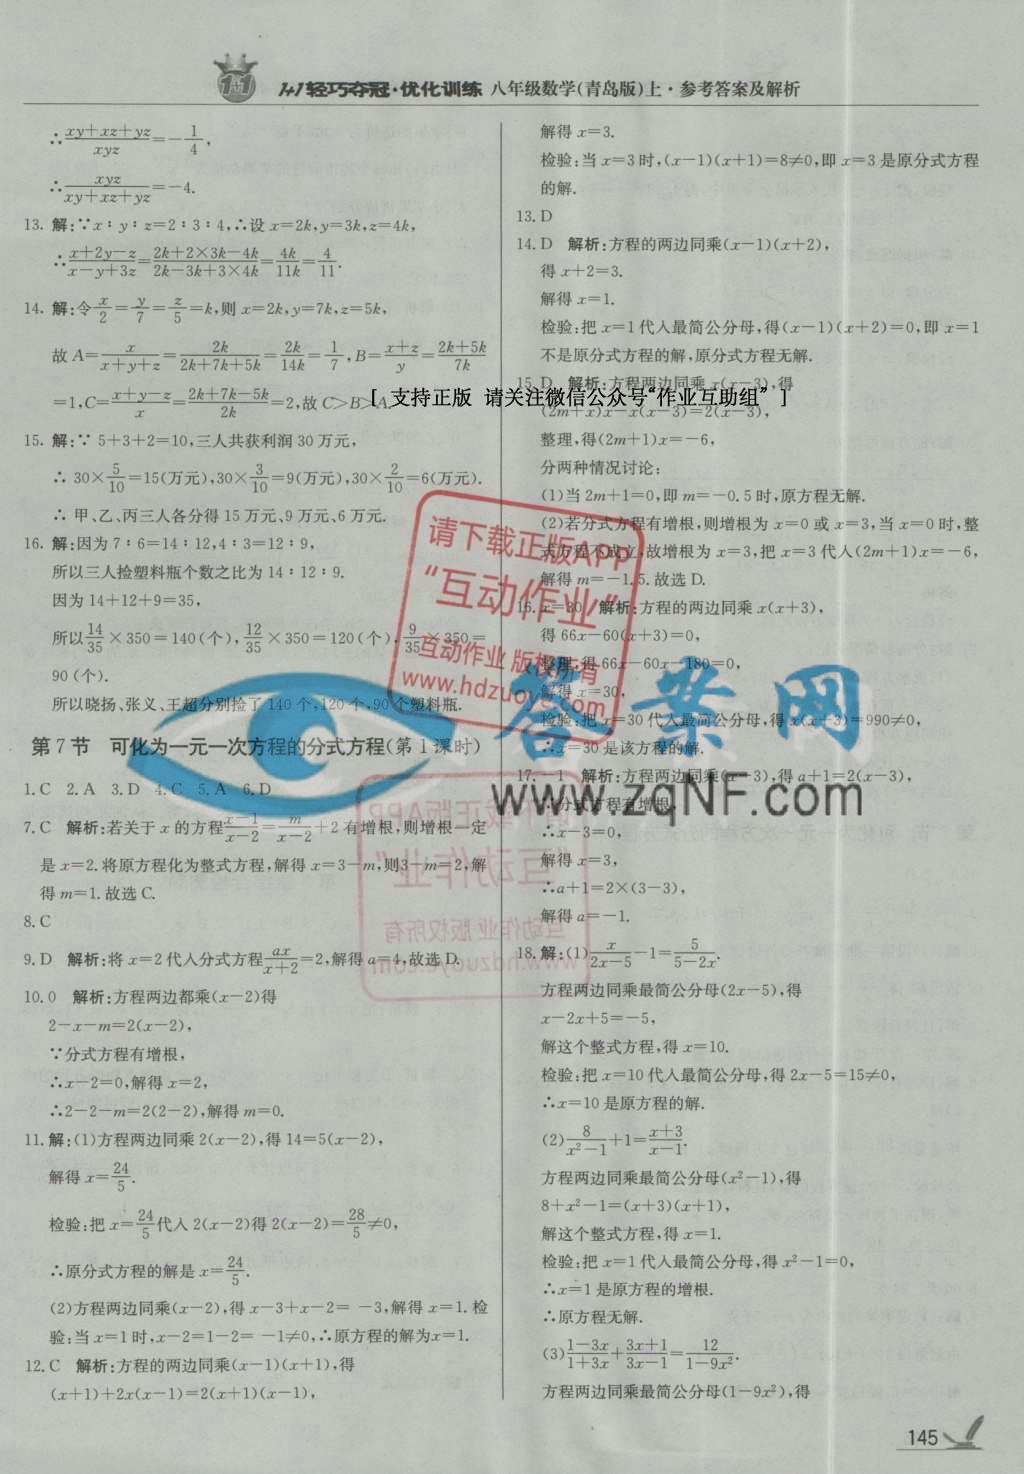 1+1轻巧夺冠·优化训练 八年级数学(青岛版)上·参考答案及解析
∴(xy+xz+yz)/(xyz)=-1/4,
∴xyz/(xy+xz+yz)=-4.
13. 解:∵x∶y∶z=2∶3∶4,∴设x=2k,y=3k,z=4k,
∴(x+2y-z)/(x-y+3z)=(2k+2×3k-4k)/(2k-3k+3×4k)=4k/11k=4/11.
14. 解:令x/2=y/7=z/5=k,则x=2k,y=7k,z=5k,
故A=x/(x+y+z)=2k/(2k+7k+5k)=2k/14k=1/7,B=(x+z)/y=(2k+5k)/7k
=1,C=(x+y-z)/x=(2k+7k-5k)/2k=2,故C>B>A.
15. 解:∵5+3+2=10,三人共获利润30万元,
∴30×5/10=15(万元),30×3/10=9(万元),30×2/10=6(万元).
∴甲、乙、丙三人各分得15万元、9万元、6万元.
16. 解:因为7∶6=14∶12,4∶3=12∶9,
所以三人捡塑料瓶个数之比为14∶12∶9.
因为14+12+9=35,
所以14/35×350=140(个),12/35×350=120(个),9/35×350=
90(个).
所以晓扬、张义、王超分别捡了140个,120个,90个塑料瓶.
第7节 可化为一元一次方程的分式方程(第1课时)
1.C 2.A 3.D 4.C 5.A 6.D
7.C 解析:若关于x的方程(x-1)/(x-2)=m/(x-2)+2有增根,则增根一定
是x=2.将原方程化为整式方程,解得x=3-m,则3-m=2,解
得m=1.故选C.
8.C
9.D 解析:将x=2代入分式方程ax/(x+2)=2,解得a=4,故选D.
10.0 解析:方程两边都乘(x-2)得
2-x-m=2(x-2),
∵分式方程有增根,
∴x-2=0,解得x=2,
∴2-2-m=2(2-2),解得m=0.
11.解:(1)方程两边同乘2(x-2),得14=5(x-2),
解得x=24/5.
检验:把x=24/5代入2(x-2)得2(x-2)=28/5≠0,
∴原分式方程的解是x=24/5.
(2)方程两边同乘(x-2),得x-3+x-2=-3,解得x=1.检
验:当x=1时,x-2=1-2=-1≠0,∴原方程的解为x=1.
12.C 解析:方程的两边同乘(x-1)(x+1),得
(x+1)+2x(x-1)=2(x+1)(x-1),
解得x=3.
检验:当x=3时,(x-1)(x+1)=8≠0,即x=3是原分式方程
的解.
13.D
14.D 解析:方程的两边同乘(x-1)(x+2),
得x+2=3.
解得x=1.
检验:把x=1代入最简公分母,得(x-1)(x+2)=0,即x=1
不是原分式方程的解,原分式方程无解.
15.D 解析:方程两边同乘x(x-3),得
[ 支持正版 请关注微信公众号“作业互助组” ]
(2m+x)x-x(x-3)=2(x-3),
整理,得(2m+1)x=-6,
分两种情况讨论:
(1)当2m+1=0,即m=-0.5时,原方程无解.
(2)若分式方程有增根,则增根为x=0或x=3,当x=0时,整
式方程不成立,故增根为x=3,把x=3代入(2m+1)x=-6,
解得m=-1.5.故选D.
16.x=30 解析:方程的两边同乘x(x+3),
得66x-60(x+3)=0,
整理,得66x-60x-180=0,
解得x=30,
检验:把x=30代入最简公分母,得x(x+3)=990≠0,
∴x=30是该方程的解.
17.-1 解析:方程两边同乘(x-3),得a+1=2(x-3),
∵分式方程有增根,
∴x-3=0,
解得x=3,
∴a+1=2×(3-3),
解得a=-1.
18.解:(1)x/(2x-5)-1=5/(5-2x).
方程两边同乘最简公分母(2x-5),得
x-2x+5=-5,
解这个整式方程,得x=10.
检验:把x=10代入最简公分母,得2x-5=15≠0,
∴x=10是原方程的解.
(2)8/(x²-1)+1=(x+3)/(x-1).
方程两边同乘最简公分母(x²-1),得
8+x²-1=(x+3)(x+1),
解这个整式方程,得x=1.
检验:把x=1代入最简公分母,得x²-1=0,
∴x=1是原方程的增根.
∴原方程无解.
(3)(1-3x)/(1+3x)+(3x+1)/(3x-1)=12/(1-9x²).
方程两边同乘最简公分母(1-9x²),得
145
请下载正版APP
“互动作业”
互动作业 版权所有
www.hdzuoye.com
答案网
www.zqNF.com